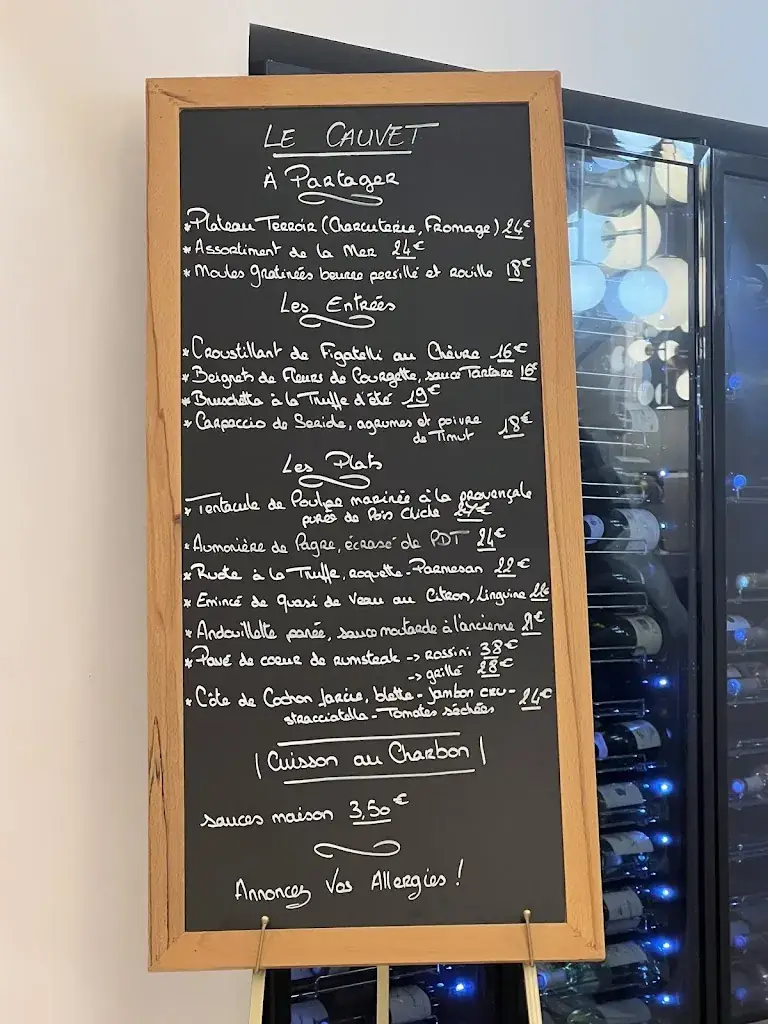 LE CAUVET
À Partager
* Plateau Terroir (Charcuterie, Fromage) 24€
* Assortiment de la Mer 24€
* Moules gratinées beurre persillé et rouille 18€
Les Entrées
* Croustillant de Figatelli au Chèvre 16€
* Beignets de Fleurs de Courgette, sauce Tartare 16€
* Bruschetta à la Truffe d'été 19€
* Carpaccio de Seriole, agrumes et poivre
de Timut 18€
Les Plats
* Tentacule de Poulpe marinée à la provençale
purée de Pois Chiche 27€
* Aumonière de Pagre, écrasé de PDT 24€
* Ruote à la Truffe, roquette - Parmesan 22€
* Emincé de quasi de Veau au Citron, Linguine
* Andouillette panée, sauce moutarde à l'ancienne 21€
* Pavé de coeur de rumsteak -> rossini 38€
-> grillé 28€
* Côte de Cochon farcie, blette - jambon cru - 24€
stracciatella - Tomates séchées
| Cuisson au Charbon |
sauces maison 3,50€
Annoncez Vos Allergies !